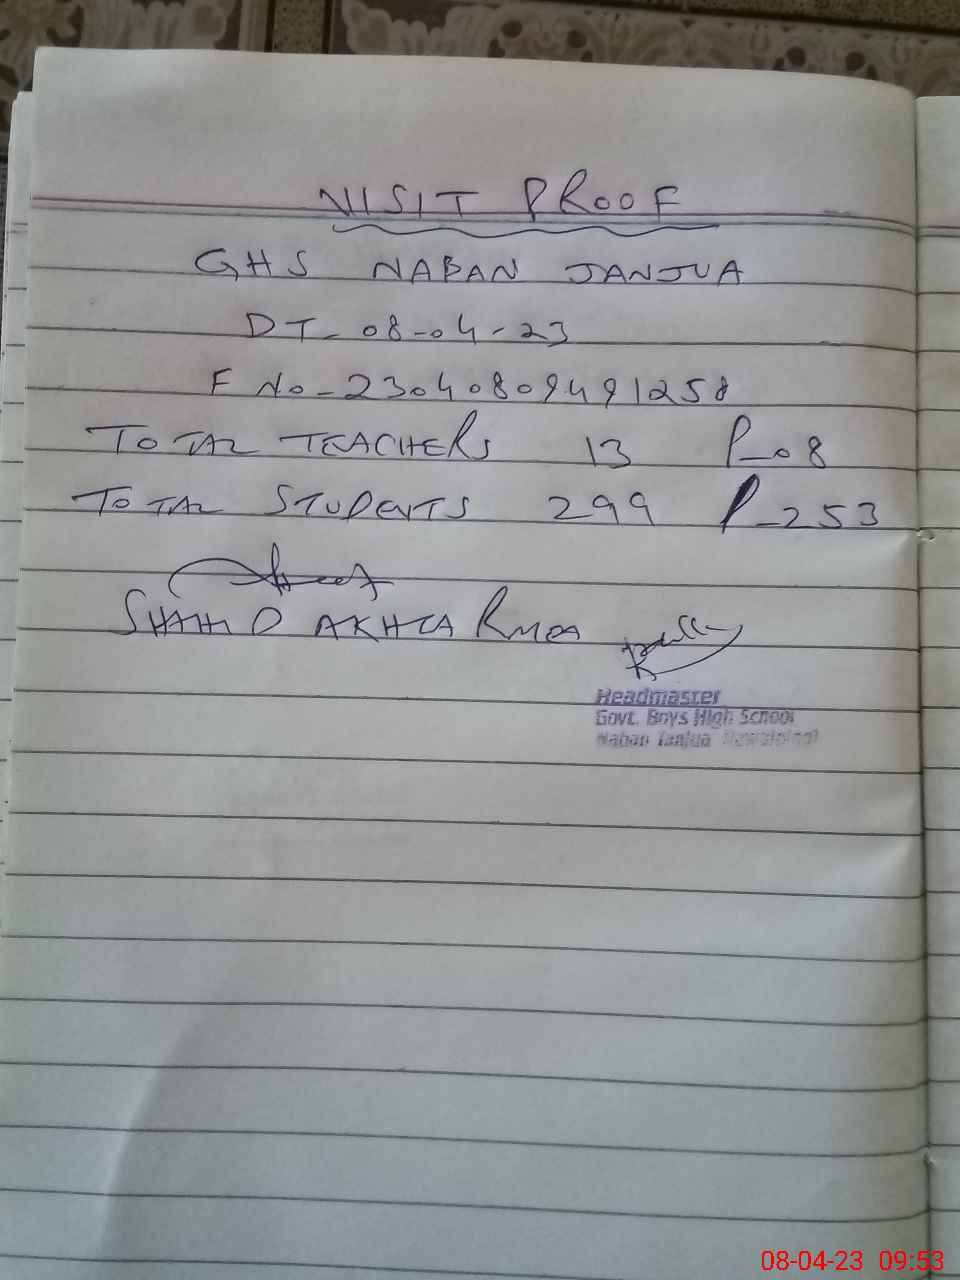 VISIT PROOF
GHS NABAN JANJUA
DT- 08-04-23
F No - 23040809491258
TOTAL TEACHERS 13 P-08
TOTAL STUDENTS 299 P-253
SHAHID AKHTAR MEA
Headmaster
Govt. Boys High School
Naban Janjua
08-04-23 09:53